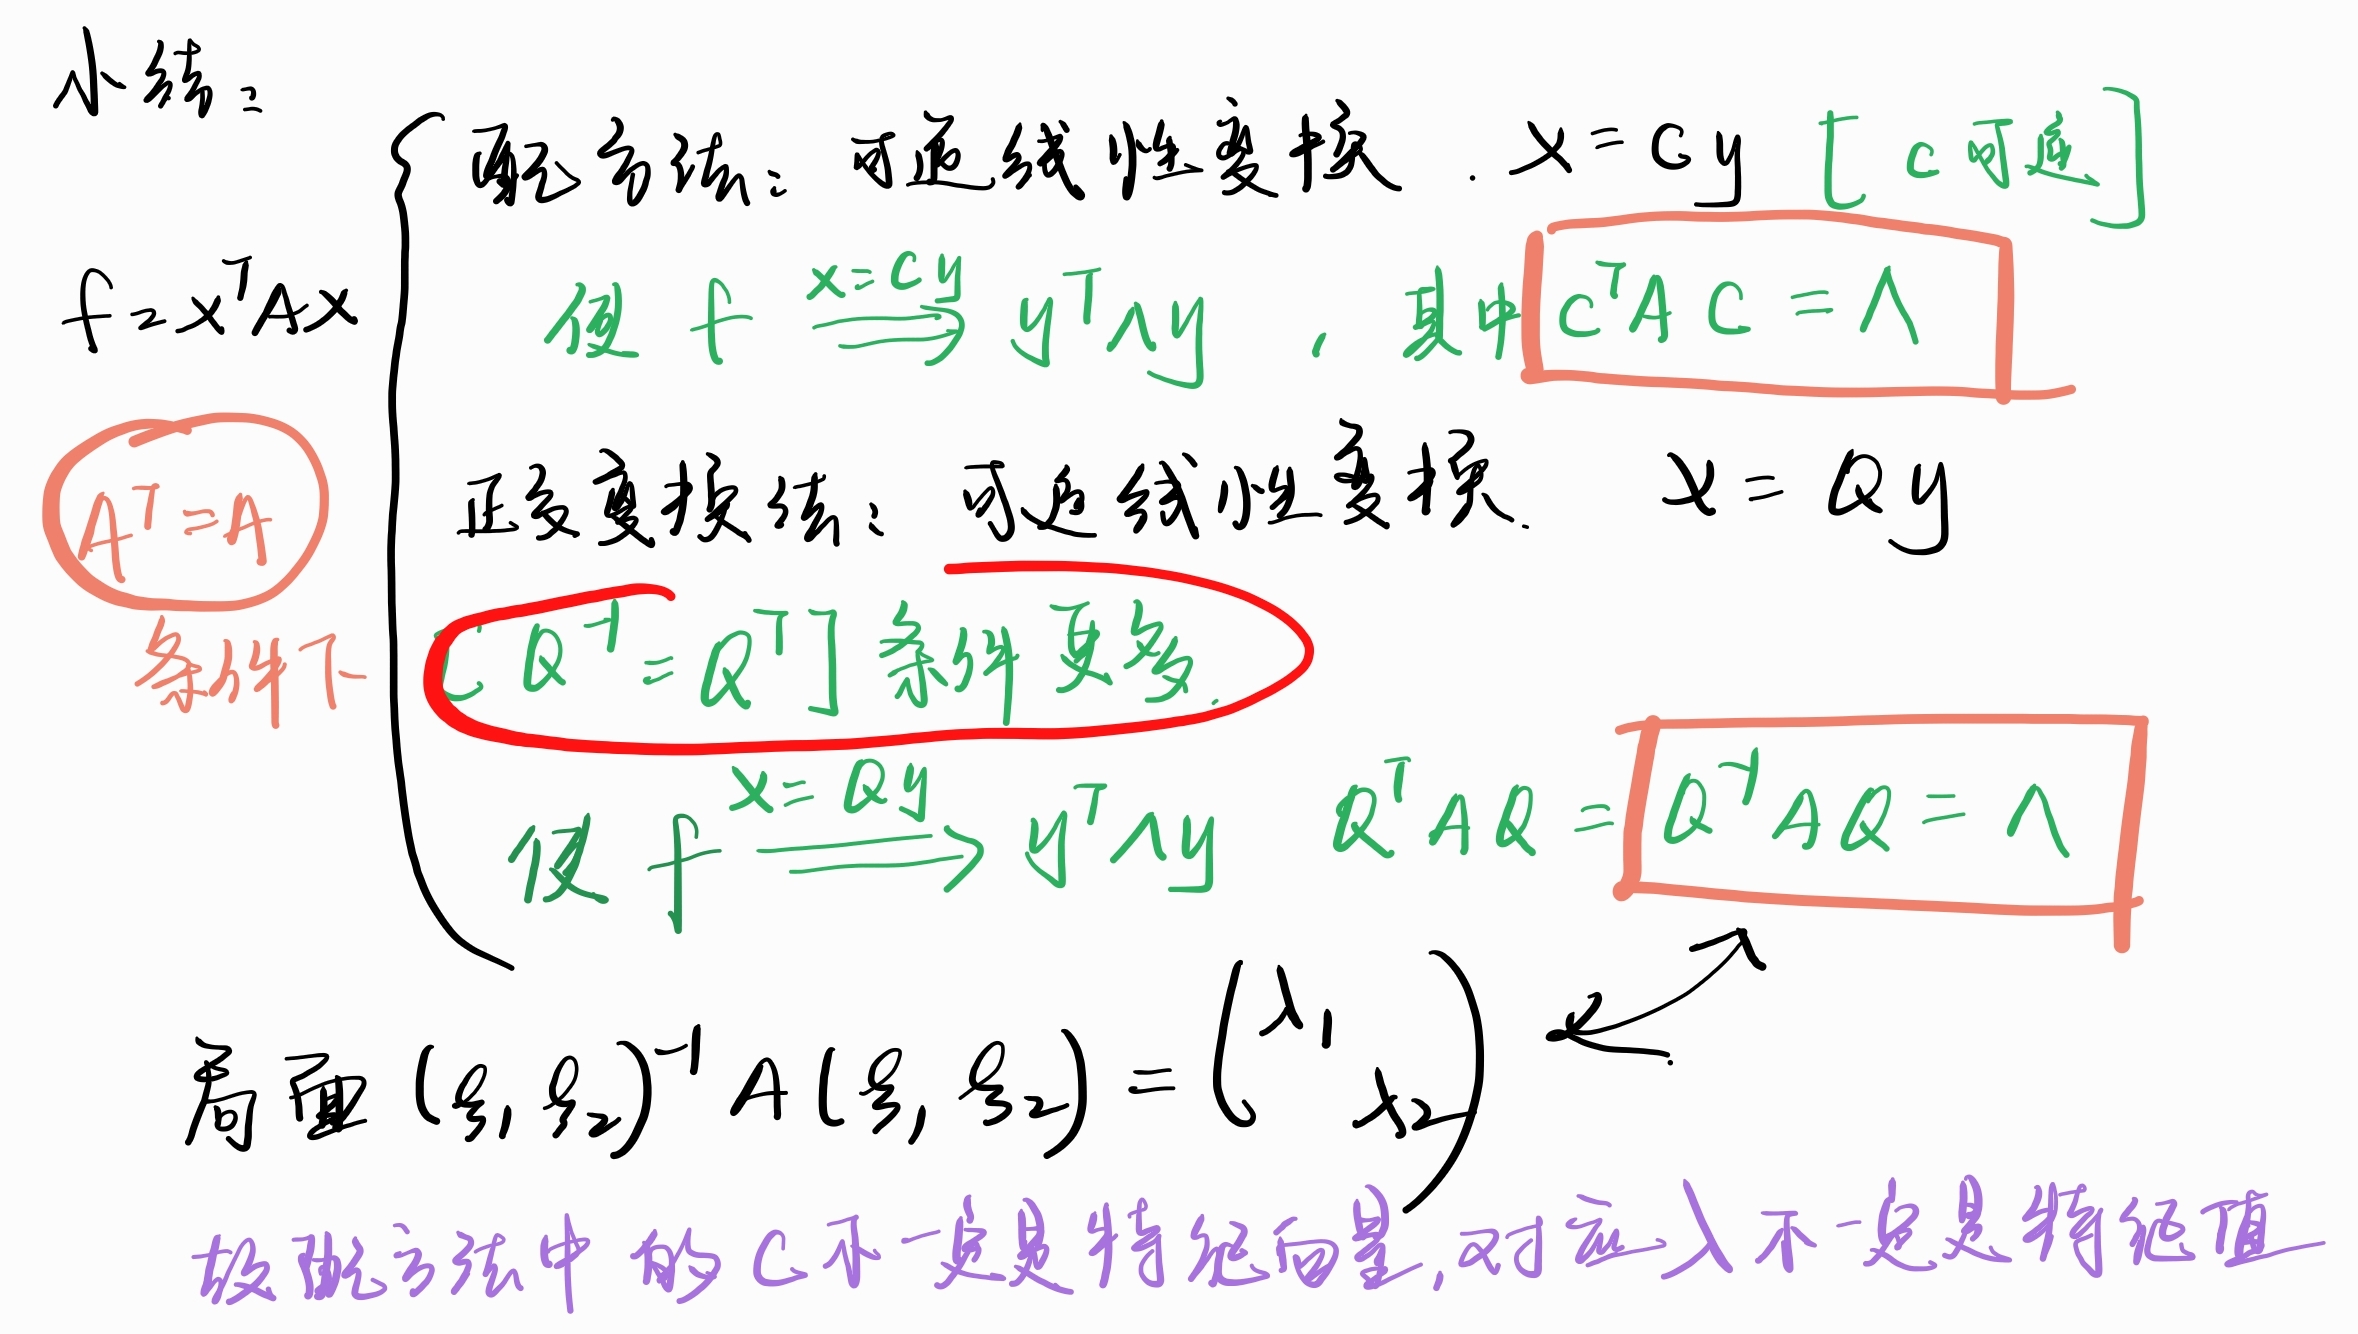 小结：
配方法：可逆线性变换. x = Cy [C可逆]
f = xᵀAx
使 f ⟹(x=Cy) yᵀΛy , 其中 CᵀAC = Λ
Aᵀ = A
条件下
正交变换法：可逆线性变换. x = Qy
[Q⁻¹ = Qᵀ] 条件更多.
使 f ⟹(x=Qy) yᵀΛy QᵀAQ = Q⁻¹AQ = Λ
(ξ₁ ξ₂)⁻¹ A (ξ₁ ξ₂) = (λ₁
λ₂)
故配方法中的C不一定是特征向量,对应λ不一定是特征值